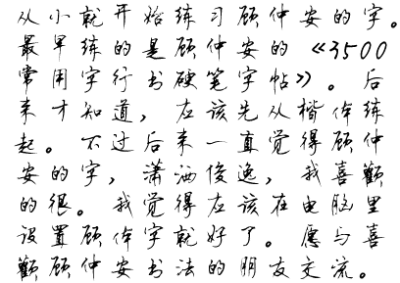 从小就开始练习顾仲安的字。
最早练的是顾仲安的《3500
常用字行书硬笔字帖》。后
来才知道，应该先从楷体练
起。不过后来一直觉得顾仲
安的字，潇洒俊逸，我喜歡
的很。我觉得应该在电脑里
设置顾体字就好了。愿与喜
歡顾仲安书法的朋友交流。